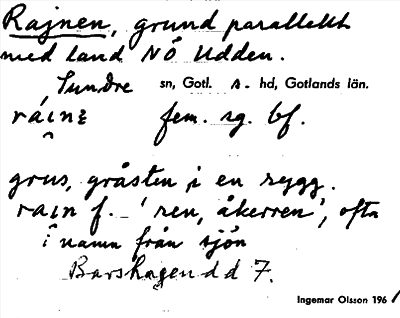 Rajnen, grund parallellt
med land NÖ Udden.
Sundre sn, Gotl. s. hd, Gotlands län.
fem. sg. bf.
grus, gråsten i en rygg.
rain f. _ 'ren, åkerren', ofta
i namn från sjön
Barshagen d d 7.
Ingemar Olsson 1961